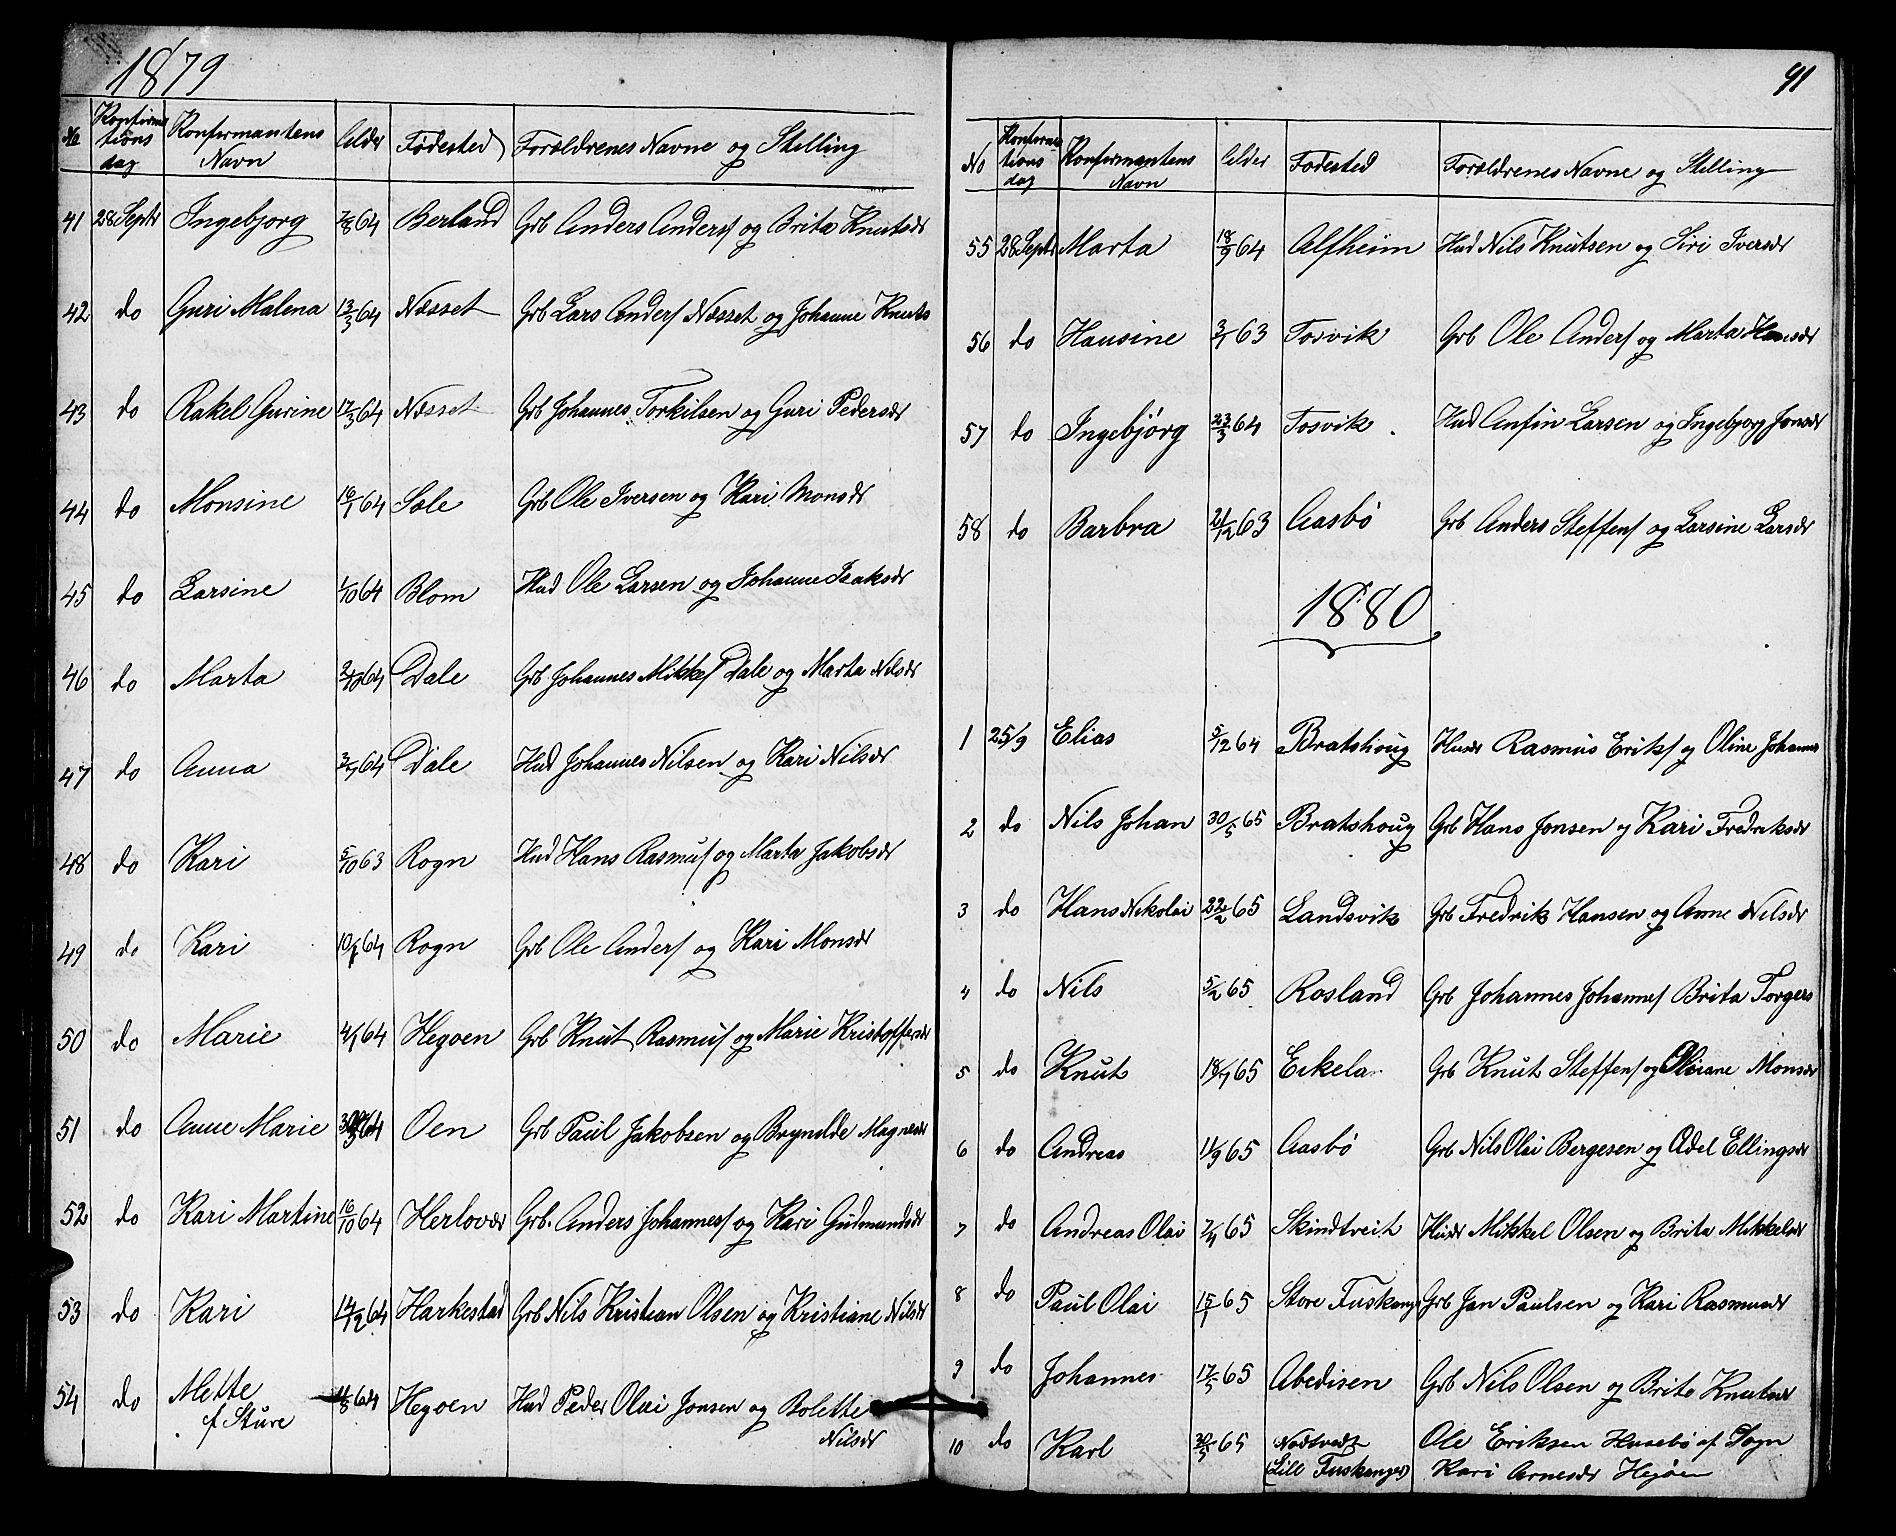 1879
No Konfirmationsdag Konfirmantens Navn Alder Fødested Forældrenes Navne og Stilling
41 28 Septr Ingebjorg 7/8 64 Berland Grb Anders Anders/ og Brita Knutsdr
42 do Guri Malena 13/3 64 Næsset Grb Lars Anders/ Næsset og Johanne Knuts
43 do Rakel Gurine 17/3 64 Næsset Grb Johannes Torkilsen og Guri Pedersdr
44 do Monsine 16/1 64 Sole Grb Ole Iversen og Kari Monsdr
45 do Larsine 1/10 64 Blom Hud Ole Larsen og Johanne Isaksdr
46 do Marta 2/10 64 Dale Grb Johannes Mikkel/ Dale og Marta Nilsdr
47 do Anna 64 Dale Hud Johannes Nilsen og Kari Nilsdr
48 do Kari 5/10 63 Rogn Hud Hans Rasmus/ og Marta Jakobsdr
49 do Kari 64 Rogn Grb Ole Anders/ og Kari Monsdr
50 do Marie 4/1 64 Hegøen Grb Knut Rasmus/ og Marie Kristoffersdr
51 do Anne Marie 64 Oen Grb Paul Jakobsen og Brynilde Magnesdr
52 do Kari Martine 16/10 64 Herlovær Grb. Anders Johannes/ og Kari Gudmundsdr
53 do Kari 14/2 64 Harkestad Grb Nils Kristian Olsen og Kristiane Nilsdr
54 do Mette 64 Hegøen Hud Peder Olai Jonsen og Bolette
f. Sture Nilsdr
91
No Konfirmationsdag Konfirmantens Navn Alder Fødested Forældrenes Navne og Stilling
55 28 Septr Marta 18/9 64 Alfheim Hud Nils Knutsen og Siri Iversdr
56 do Hansine 3/1 63 Tosvik Grb Ole Anders/ og Marta Hansdr
57 do Ingebjørg 23/3 64 Tosvik. Hud Anfin Larsen og Ingebjorg Jonsdr
58 do Barbra 21/12 63 Aasbø Grb Anders Steffens/ og Larsine Larsdr
1880
1 25/9 Elias 5/12 64 Bratshoug Husdr Rasmus Eriks/ og Oline Johannes
2 do Nils Johan 30/5 65 Bratshoug Grb Hans Jonsen og Kari Fredriksdr
3 do Hans Nikolai 22/2 65 Landsvik Grb Fredrik Hansen og Anne Nilsdr
4 do Nils 5/2 65 Rosland Grb Johannes Johannes/ Brita Torgers
5 do Knut 18/7 65 Eikela Grb Knut Steffens/ og Oliane Monsdr
6 do Andreas 11/9 65 Aasbø Grb Nils Olai Bergesen og Adel Ellingsdr
7 do Andreas Olai 7/4 65 Skindtveit Husdr Mikkel Olsen og Brita Mikkelsdr
8 do Paul Olai 15/1 65 Store Fuskanger Grb Jan Paulsen og Kari Rasmusdr
9 do Johannes 17/5 65 Abedisen Grb Nils Olsen og Brite Knutsdr
10 do Karl 65 Nodtvedt Ole Eriksen Husebø af Sogn
(Lill Fuskanger) Kari Arnesdr Hegøen